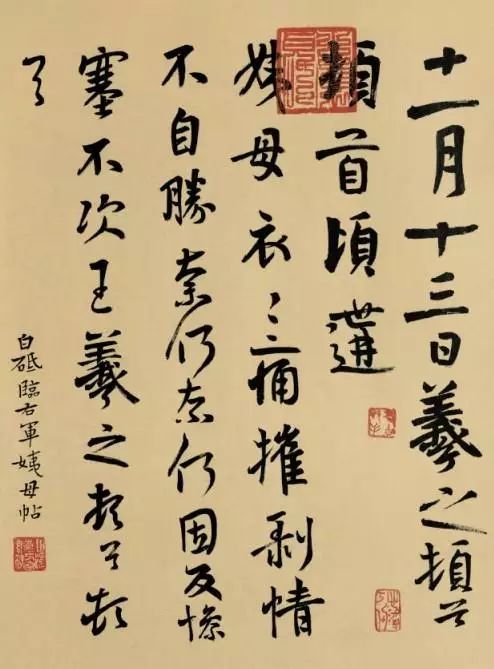 十一月十三日羲之頓首
頓首頃遘
姨母哀〻痛摧剝情
不自勝奈何奈何因反慘
塞不次王羲之頓首頓
首
白砥臨右軍姨母帖